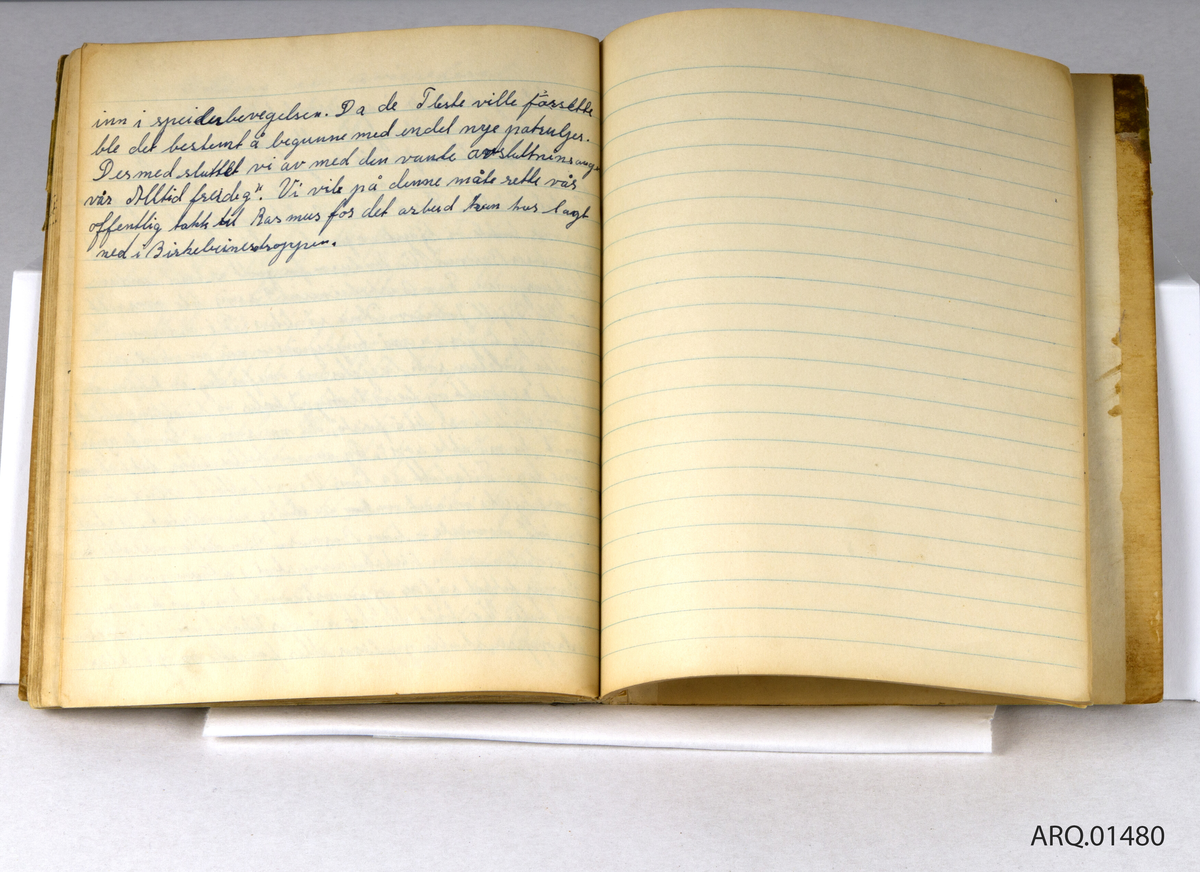 inn i speiderbevegelsen. Da de Fleste ville fårsette
ble det bestemt å begynne med endel nye patruljer.
Dermed sluttet vi av med den vande avsluttnins
vår Alltid freidig". Vi vile på denne måte rette vår
offentlig takk til Rasmus for det arbeid han har lagt
ned i Birkebeinertroppen.
ARQ.01480